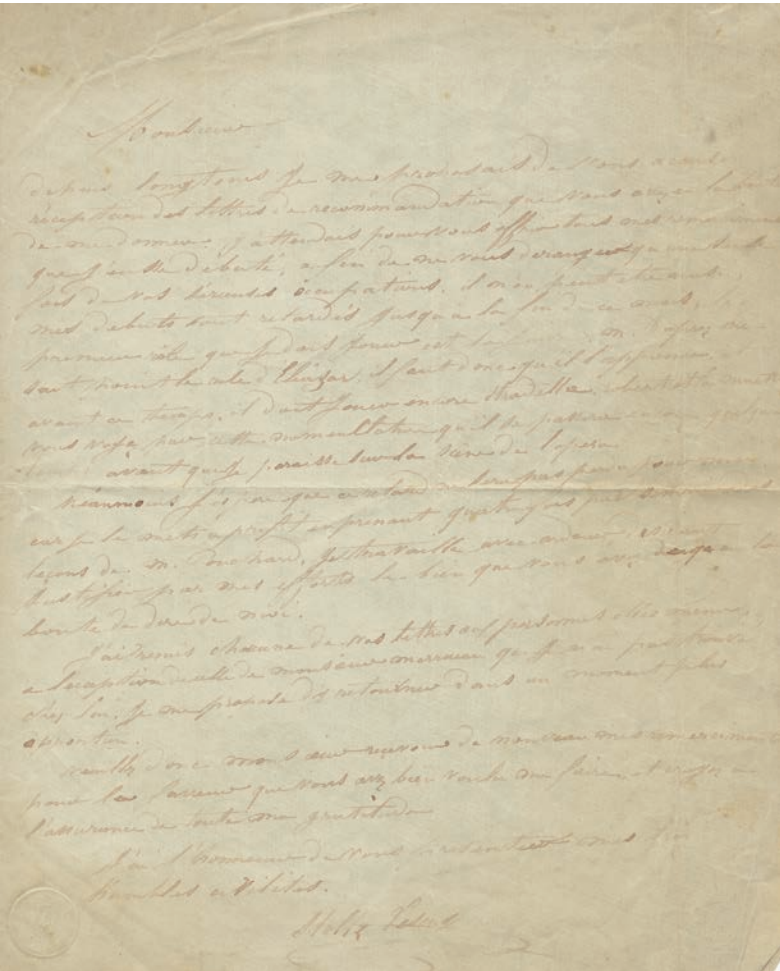 Monsieur
depuis longtems je me proposais de vous accuser
réception des lettres de recommandation que vous avez eu la bonté
de me donner, j'attendais pour vous offrir tous mes remercimens
que j'eusse débuté, afin de ne vous déranger qu'une seule
fois de vos sérieuses occupations, il n'en peut être ainsi,
mes débuts sont retardés jusqu'à la fin de ce mois, le
premier rôle que je dois jouer est m. Duprez ne
sait point le rôle d'Eléazar, il faut donc qu'il l'apprenne,
avant ce temps, il doit jouer encore Stradella, et la muette
vous voyez par cette nomenclature qu'il se passera encore quelque
avant que je paraisse sur la scène de l'opéra
néanmoins j'espère que ce retard ne sera pas perdu pour moi
car je le mets à profit en prenant quatre par semaine
leçons de m. Ponchard, je travaille avec ardeur
justifier par mes efforts le bien que vous avez déjà eu la
bonté de dire de moi.
J'ai remis chacune de vos lettres aux personnes elles mêmes,
a l'exception de celle de monsieur que je n'ai pas trouvé
chez lui, je me propose d'y retourner dans un moment plus
opportun.
veuillez donc monsieur recevoir de nouveau mes remerciments
pour la faveur que vous avez bien voulu me faire, et croyez à
l'assurance de toute ma gratitude
J'ai l'honneur de vous présenter mes
humbles civilités.